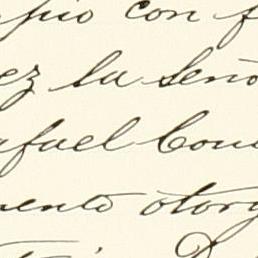 con
ez la seño
afael Con
mento otorg